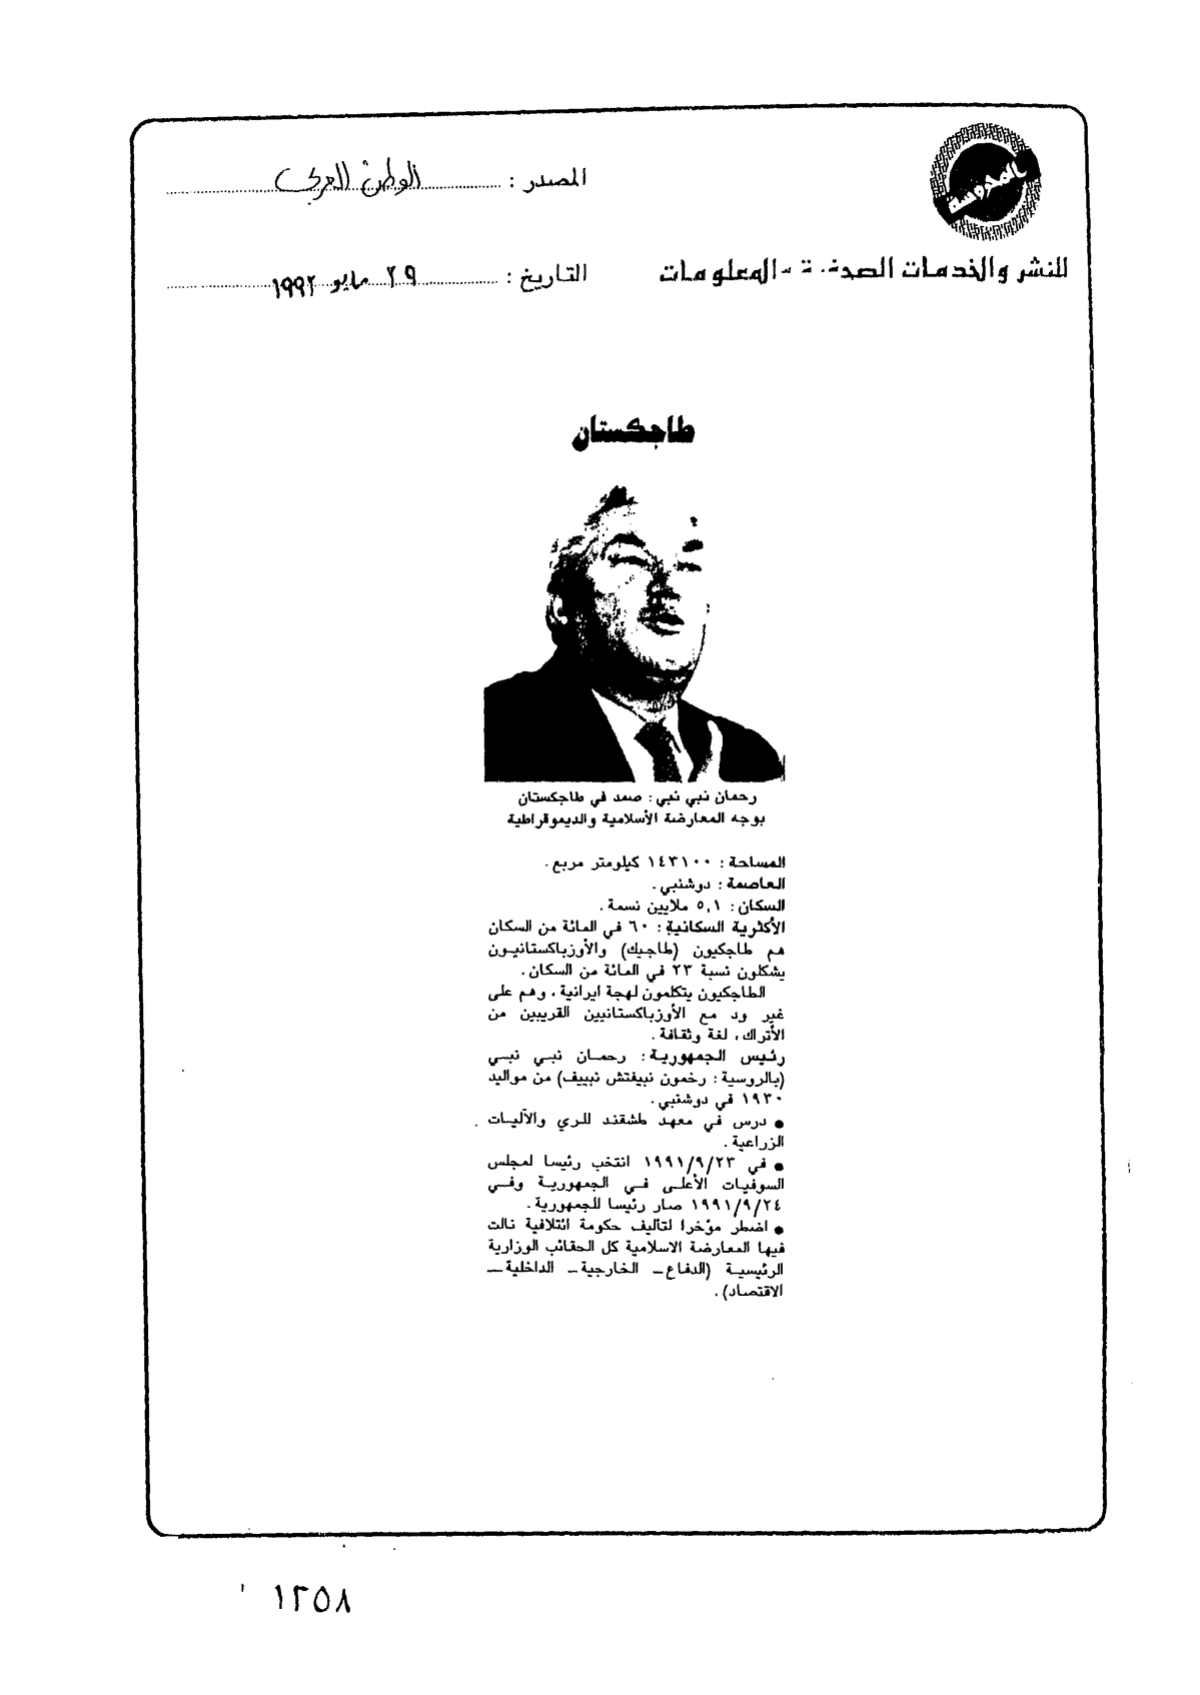 المحروسة
للنشر والخدمات الصحفية والمعلومات
المصدر : الوطن العربي
التاريخ : ٢٩ مايو ١٩٩٢
طاجكستان
رحمان نبي نبي : صمد في طاجكستان
بوجه المعارضة الأسلامية والديموقراطية
المساحة : ١٤٣١٠٠ كيلومتر مربع .
العاصمة : دوشنبي .
السكان : ٥,١ ملايين نسمة .
الأكثرية السكانية : ٦٠ في المائة من السكان
هم طاجكيون (طاجيك) والأوزباكستانيون
يشكلون نسبة ٢٣ في المائة من السكان .
الطاجكيون يتكلمون لهجة ايرانية ، وهم على
غير ود مع الأوزباكستانيين القريبين من
الأتراك ، لغة وثقافة .
رئيس الجمهورية : رحمان نبي نبي
(بالروسية : رخمون نبيفتش نبييف) من مواليد
١٩٣٠ في دوشنبي .
● درس في معهد طشقند للري والآليات
الزراعية .
● في ١٩٩١/٩/٢٣ انتخب رئيسا لمجلس
السوفيات الأعلى في الجمهورية وفي
١٩٩١/٩/٢٤ صار رئيسا للجمهورية .
● اضطر مؤخرا لتأليف حكومة ائتلافية نالت
فيها المعارضة الاسلامية كل الحقائب الوزارية
الرئيسية (الدفاع ــ الخارجية ــ الداخلية ــ
الاقتصاد) .
١٢٥٨